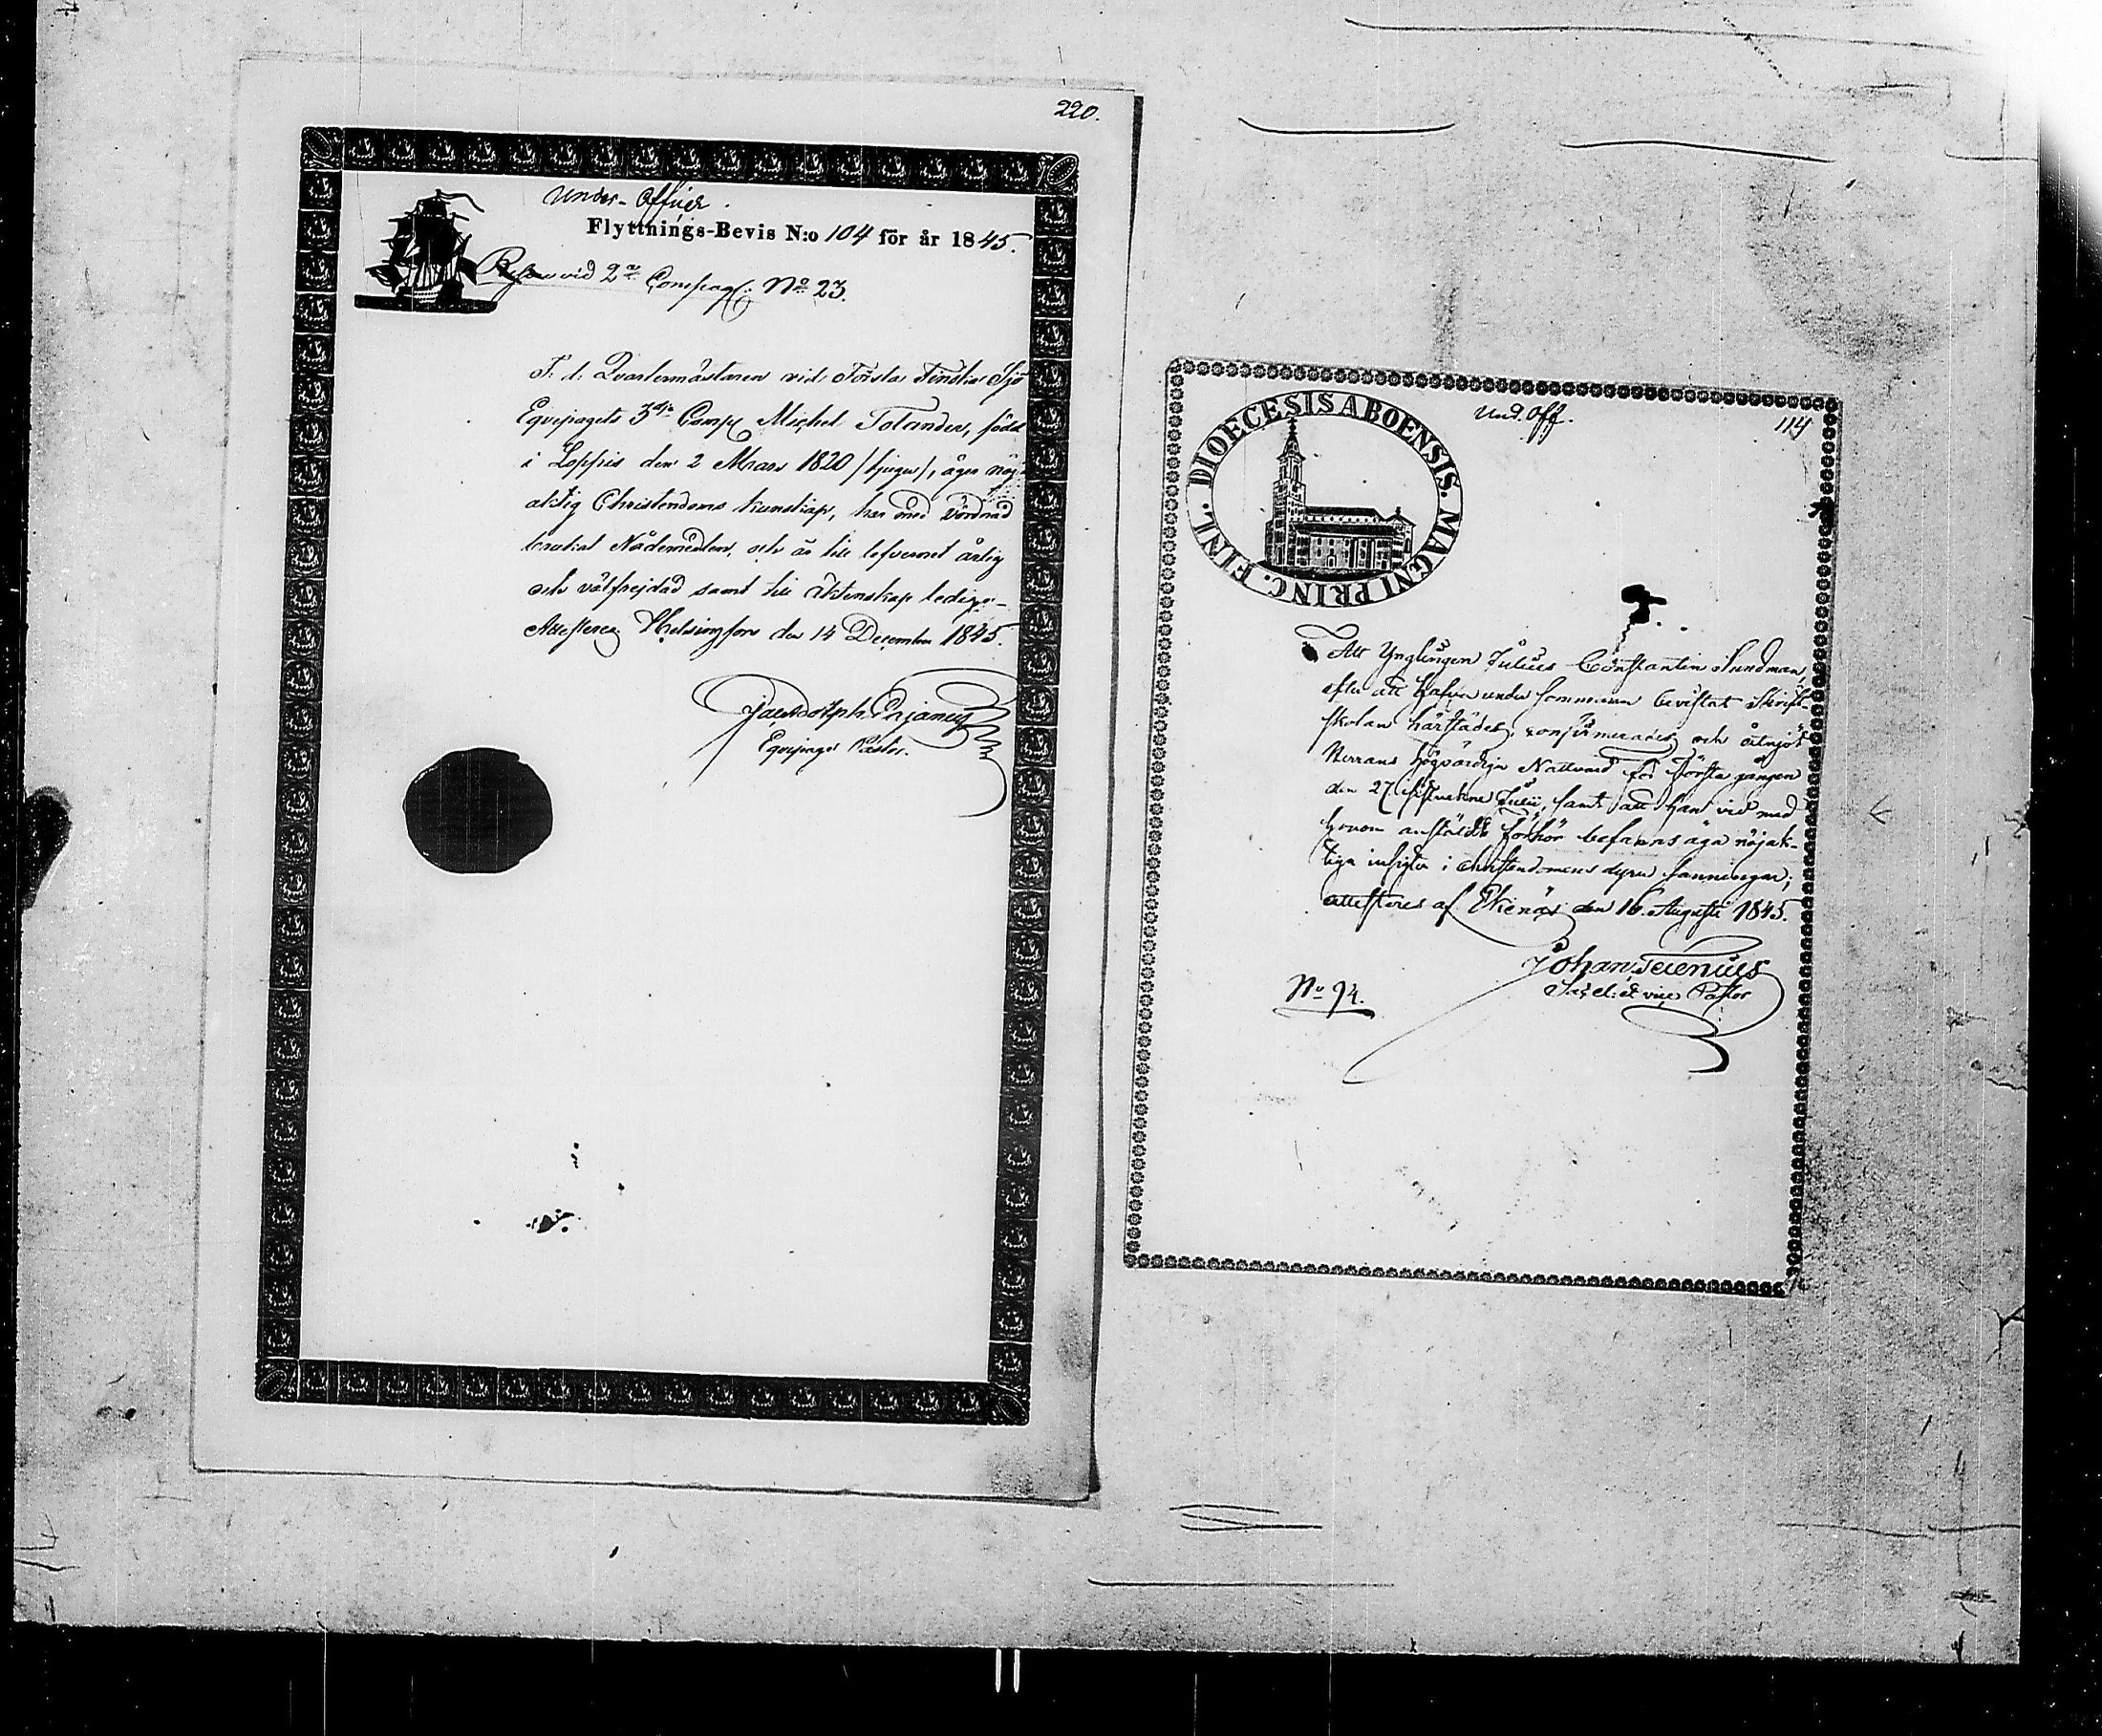 220.
Under-Officer.
Flyttnings-Bevis N:o 104 för år 1845.
vid 2:a Compag: No 23.
F. d. Qvartermästaren vid Första Finska Sjö
Eqvipagets 3dje Comp Michel Tolander, född
i Loppis den 2 Mars 1820 /tjugu/, äger nöj-
aktig Christendoms kunskap, har med vördnad
brukat Nådemedlen, och är till lefvernet ärlig
och välfrejdad samt till äktenskap ledig.-
Attesterar Helsingfors den 14 December 1845.
Eqvipages Pastor.
Und. Off.
114
DIOECESIS ABOENSIS. MAGNI PRINC. FINL.
Att Ynglingen Julius Constantin Sundman,
efter att hafva under sommaren bevistat Skrift-
skolan härstädes, konfirmerades och åtnjöt
Herrans Högvärdiga Nattvard för första gången
den 27 sistvekne Julii, samt att han vid med
honom anstäldt förhör befanns äga nöjak-
tiga insigter i christendomens dyra sanningar;
attesteres af Ekenäs den 16. Augusti 1845.
Johan
Sacel: et vice Pastor
No 94.